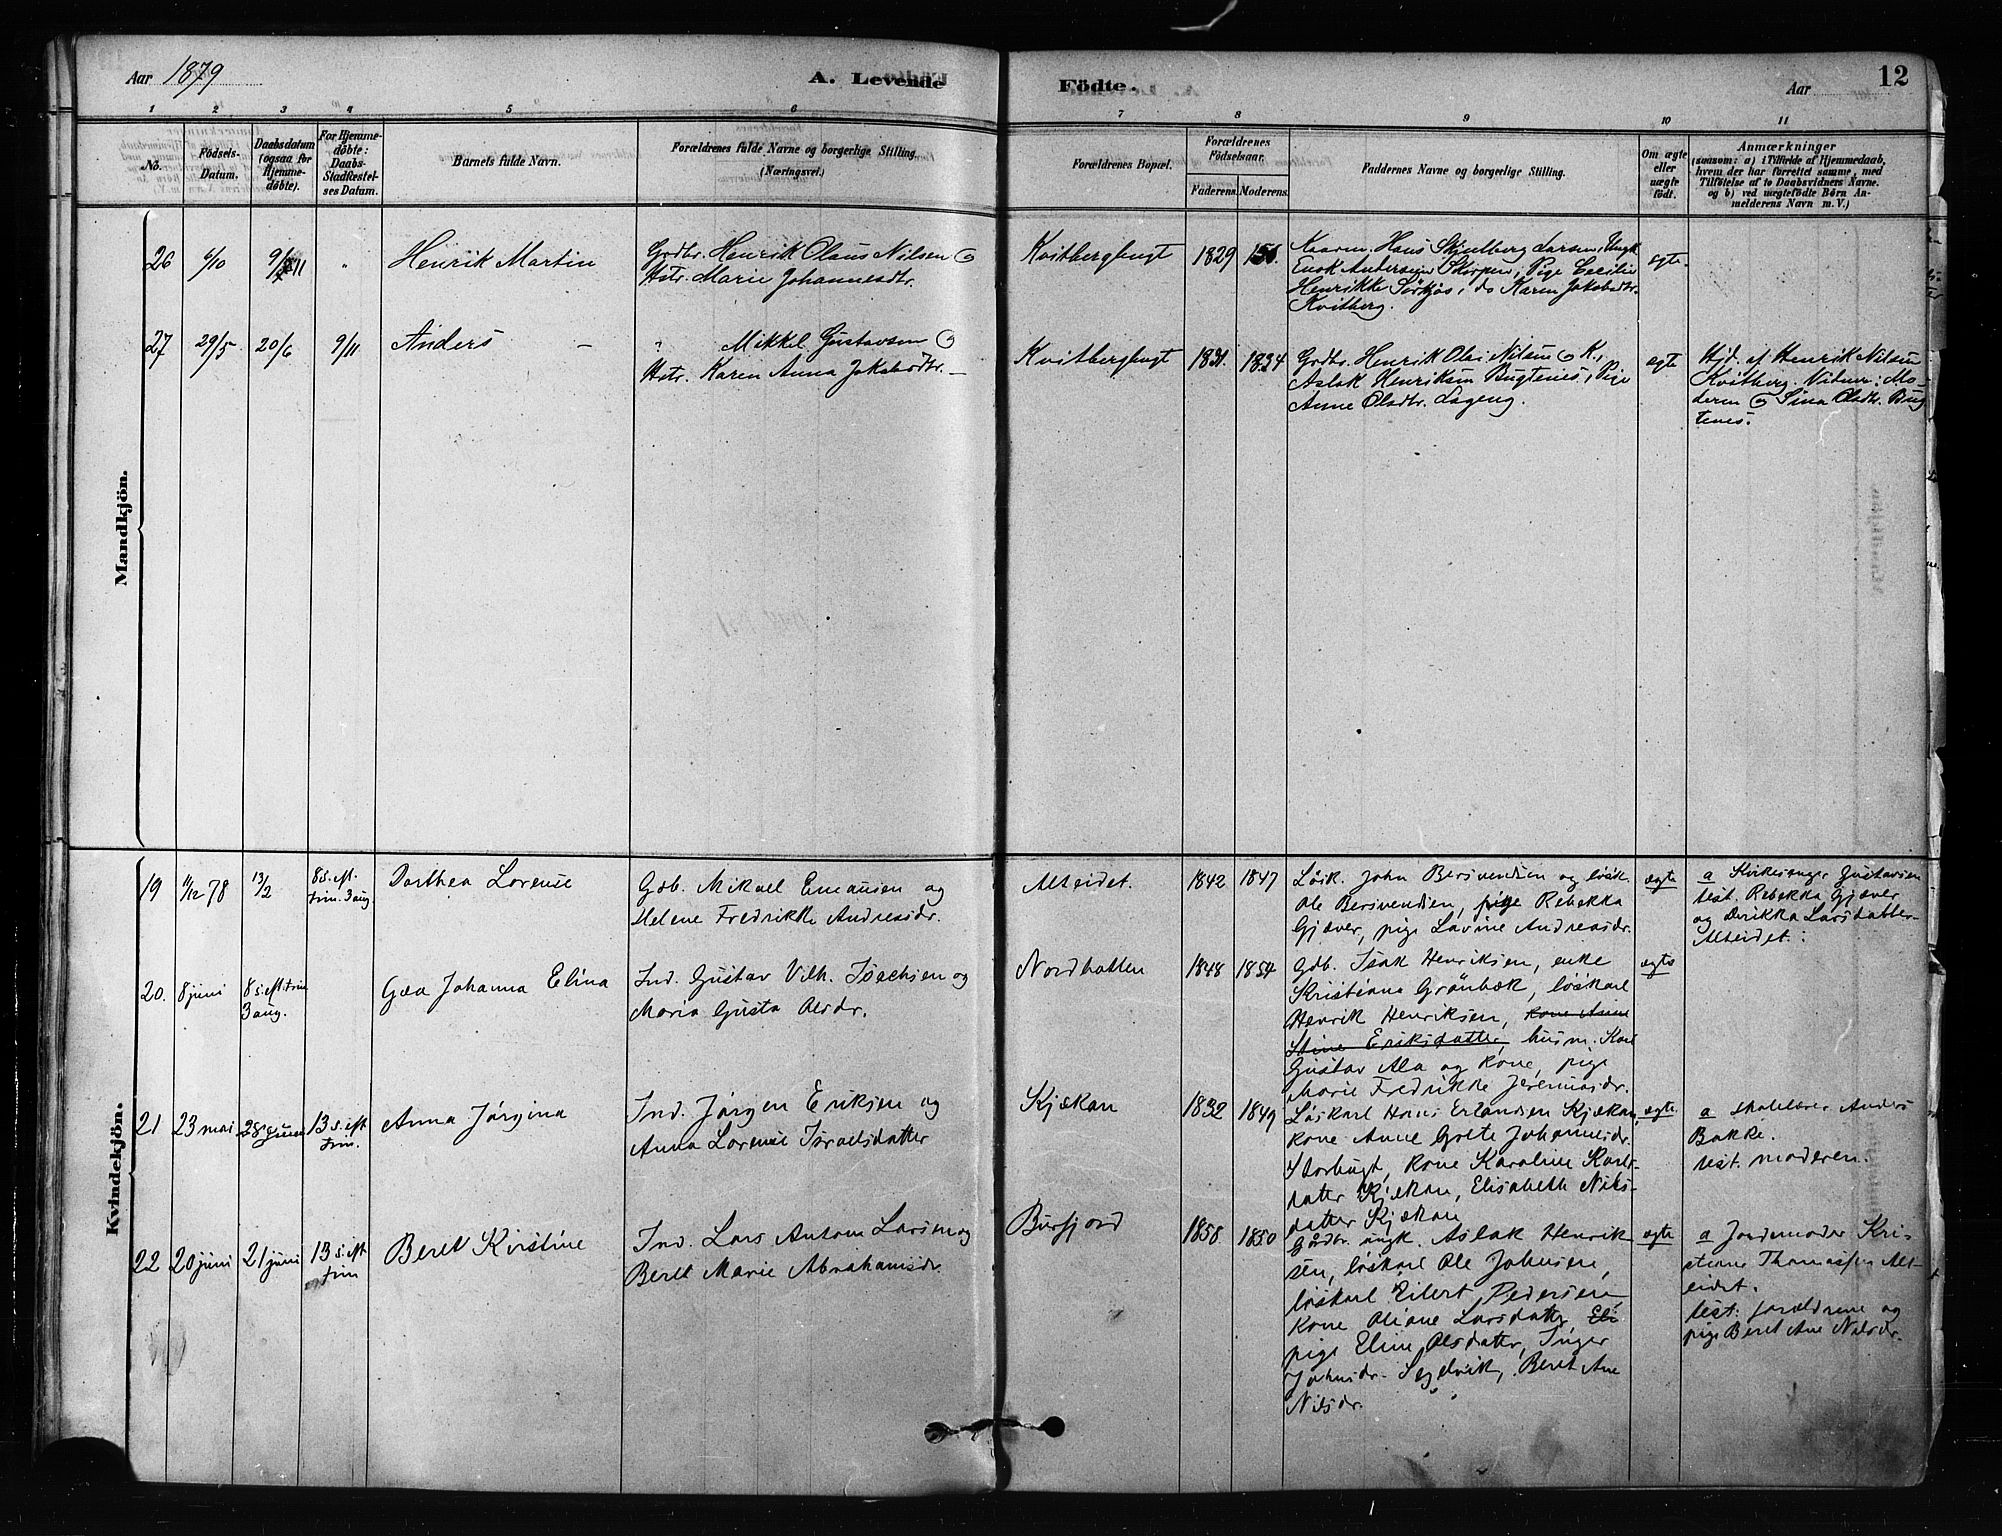 Aar 1879
A. Levende
Födte.
Aar
12
1 2 3 4 5 6 7 8 9 10 11
No.
Födsels-
Datum.
Daabsdatum
(ogsaa for
Hjemme-
döbte).
For Hjemme-
döbte:
Daabs-
Stadfæstel-
ses Datum.
Barnets fulde Navn.
Forældrenes fulde Navne og borgerlige Stilling.
(Næringsvei.)
Forældrenes Bopæl.
Forældrenes
Födselsaar.
Faderens. Moderens.
Faddernes Navne og borgerlige Stilling.
Om ægte
eller
uægte
födt.
Anmærkninger
(saasom: a) i Tilfælde af Hjemmedaab,
hvem der har forrettet samme, med
Tilföielse af to Daabsvidners Navne.
og b) ved uægtefödte Börn An-
melderens Navn m. V.)
Mandkjön.
26
/10
9/11
"
Henrik Martin
Grdbr. Henrik Olaus Nilsen &
Hstr. Marie Johannesdtr.
Kvitbergbugt
1829
Hans Skjelberg Larsen, Ungk.
Enok Andersen Skorpen, Pige Cecilie
Henrikke Sörkjos, do Karen Jakobsdtr.
Kvitberg.
ægte.
27
29/5
20/6
9/11
Anders –
" Mikkel Gustavsen &
Hstr. Karen Anna Jakobsdtr. –
Kvitbergbugt
1831.
1834
Grdbr. Henrik Olai Nilsen & K.,
Aslak Henriksen Bugtenes, Pige
Anne Olsdtr. Lageng.
ægte
Hjd. af Henrik Nilsen
Kvitberg. Vidner: Mo-
deren & Sina Olsdtr. Bug
tenes.
Kvindekjön.
19
11/12 78
13/2
8 s. eft.
trin. 3 aug.
Dorthea Lovense
Gdb. Mikael Emausen og
Helene Fredrikke Andreasdr.
Alteidet.
1842
1847
Lösk. John Bersvendsen og lösk.
Ole Bersvendsen, pige Rebekka
Gjæver, pige Lavine Andreasdr.
ægte
a Kirkesanger Gustavsen
test. Rebekka Gjæver
og Derikka Larsdatter
Alteidet.
20.
8 juni
8 s. eft. trin
3 aug.
Gæa Johanna Elina
Ind. Gustav Vilh. Isachsen og
Maria Gusta Olsdr.
Nordbotten
1848
1854
Gdb. Isak Henriksen, enke
Kristiana Grönbæk, löskarl
Henrik Henriksen, kone Anne
Stine Eriksdatter, husm. Karl
Gustav Ala og kone, pige
Marie Fredrikke Jeremiasdr.
ægte
21
23 mai
28 juni
13 s. eft
trin.
Anna Jörgina
Ind. Jörgen Eriksen og
Anna Lovense Israelsdatter
Kjækan
1832
1849
Löskarl Hans Erlandsen Kjækan,
kone Anne Grete Johannesdr.
Storbugt, kone Karoline Karls-
datter Kjækan, Elisabeth Nils-
datter Kjækan
ægte
a skolelærer Anders
Bakke.
test. moderen.
22
20 juni
21 juni
13 s. eft
trin
Beret Kirstine
Ind. Lars Antom Larsen og
Beret Marie Abrahamsdr.
Burfjord
1858
1850
Gårdbr. ungk. Aslak Henrik
sen, löskarl Ole Johnsen,
löskarl Eilert Pedersen
kone Oliane Larsdatter, Eli
pige Eline Olsdatter, Inger
Johnsdr. Segelvik, Beret Ane
Nilsdr.
ægte
a Jordemoder Kri-
stiane Thomassen Alt-
eidet.
test. forældrene og
pige Beret Ane Nilsdr.